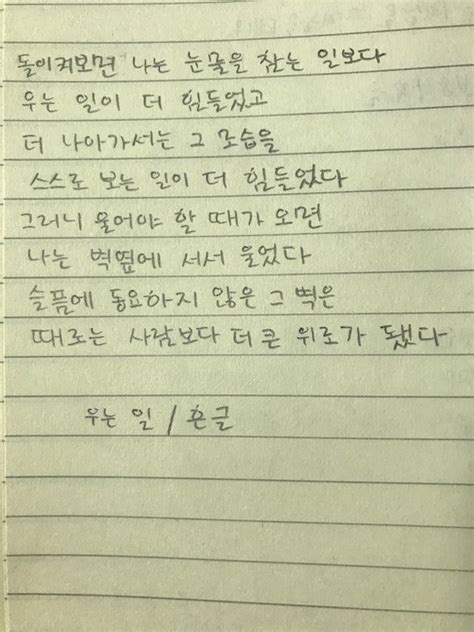 돌이켜보면 나는 눈물을 참는 일보다
우는 일이 더 힘들었고
더 나아가서는 그 모습을
스스로 보는 일이 더 힘들었다
그러니 울어야 할 때가 오면
나는 벽옆에 서서 울었다
슬픔에 동요하지 않은 그 벽은
때로는 사람보다 더 큰 위로가 됐다
우는 일 / 흔글